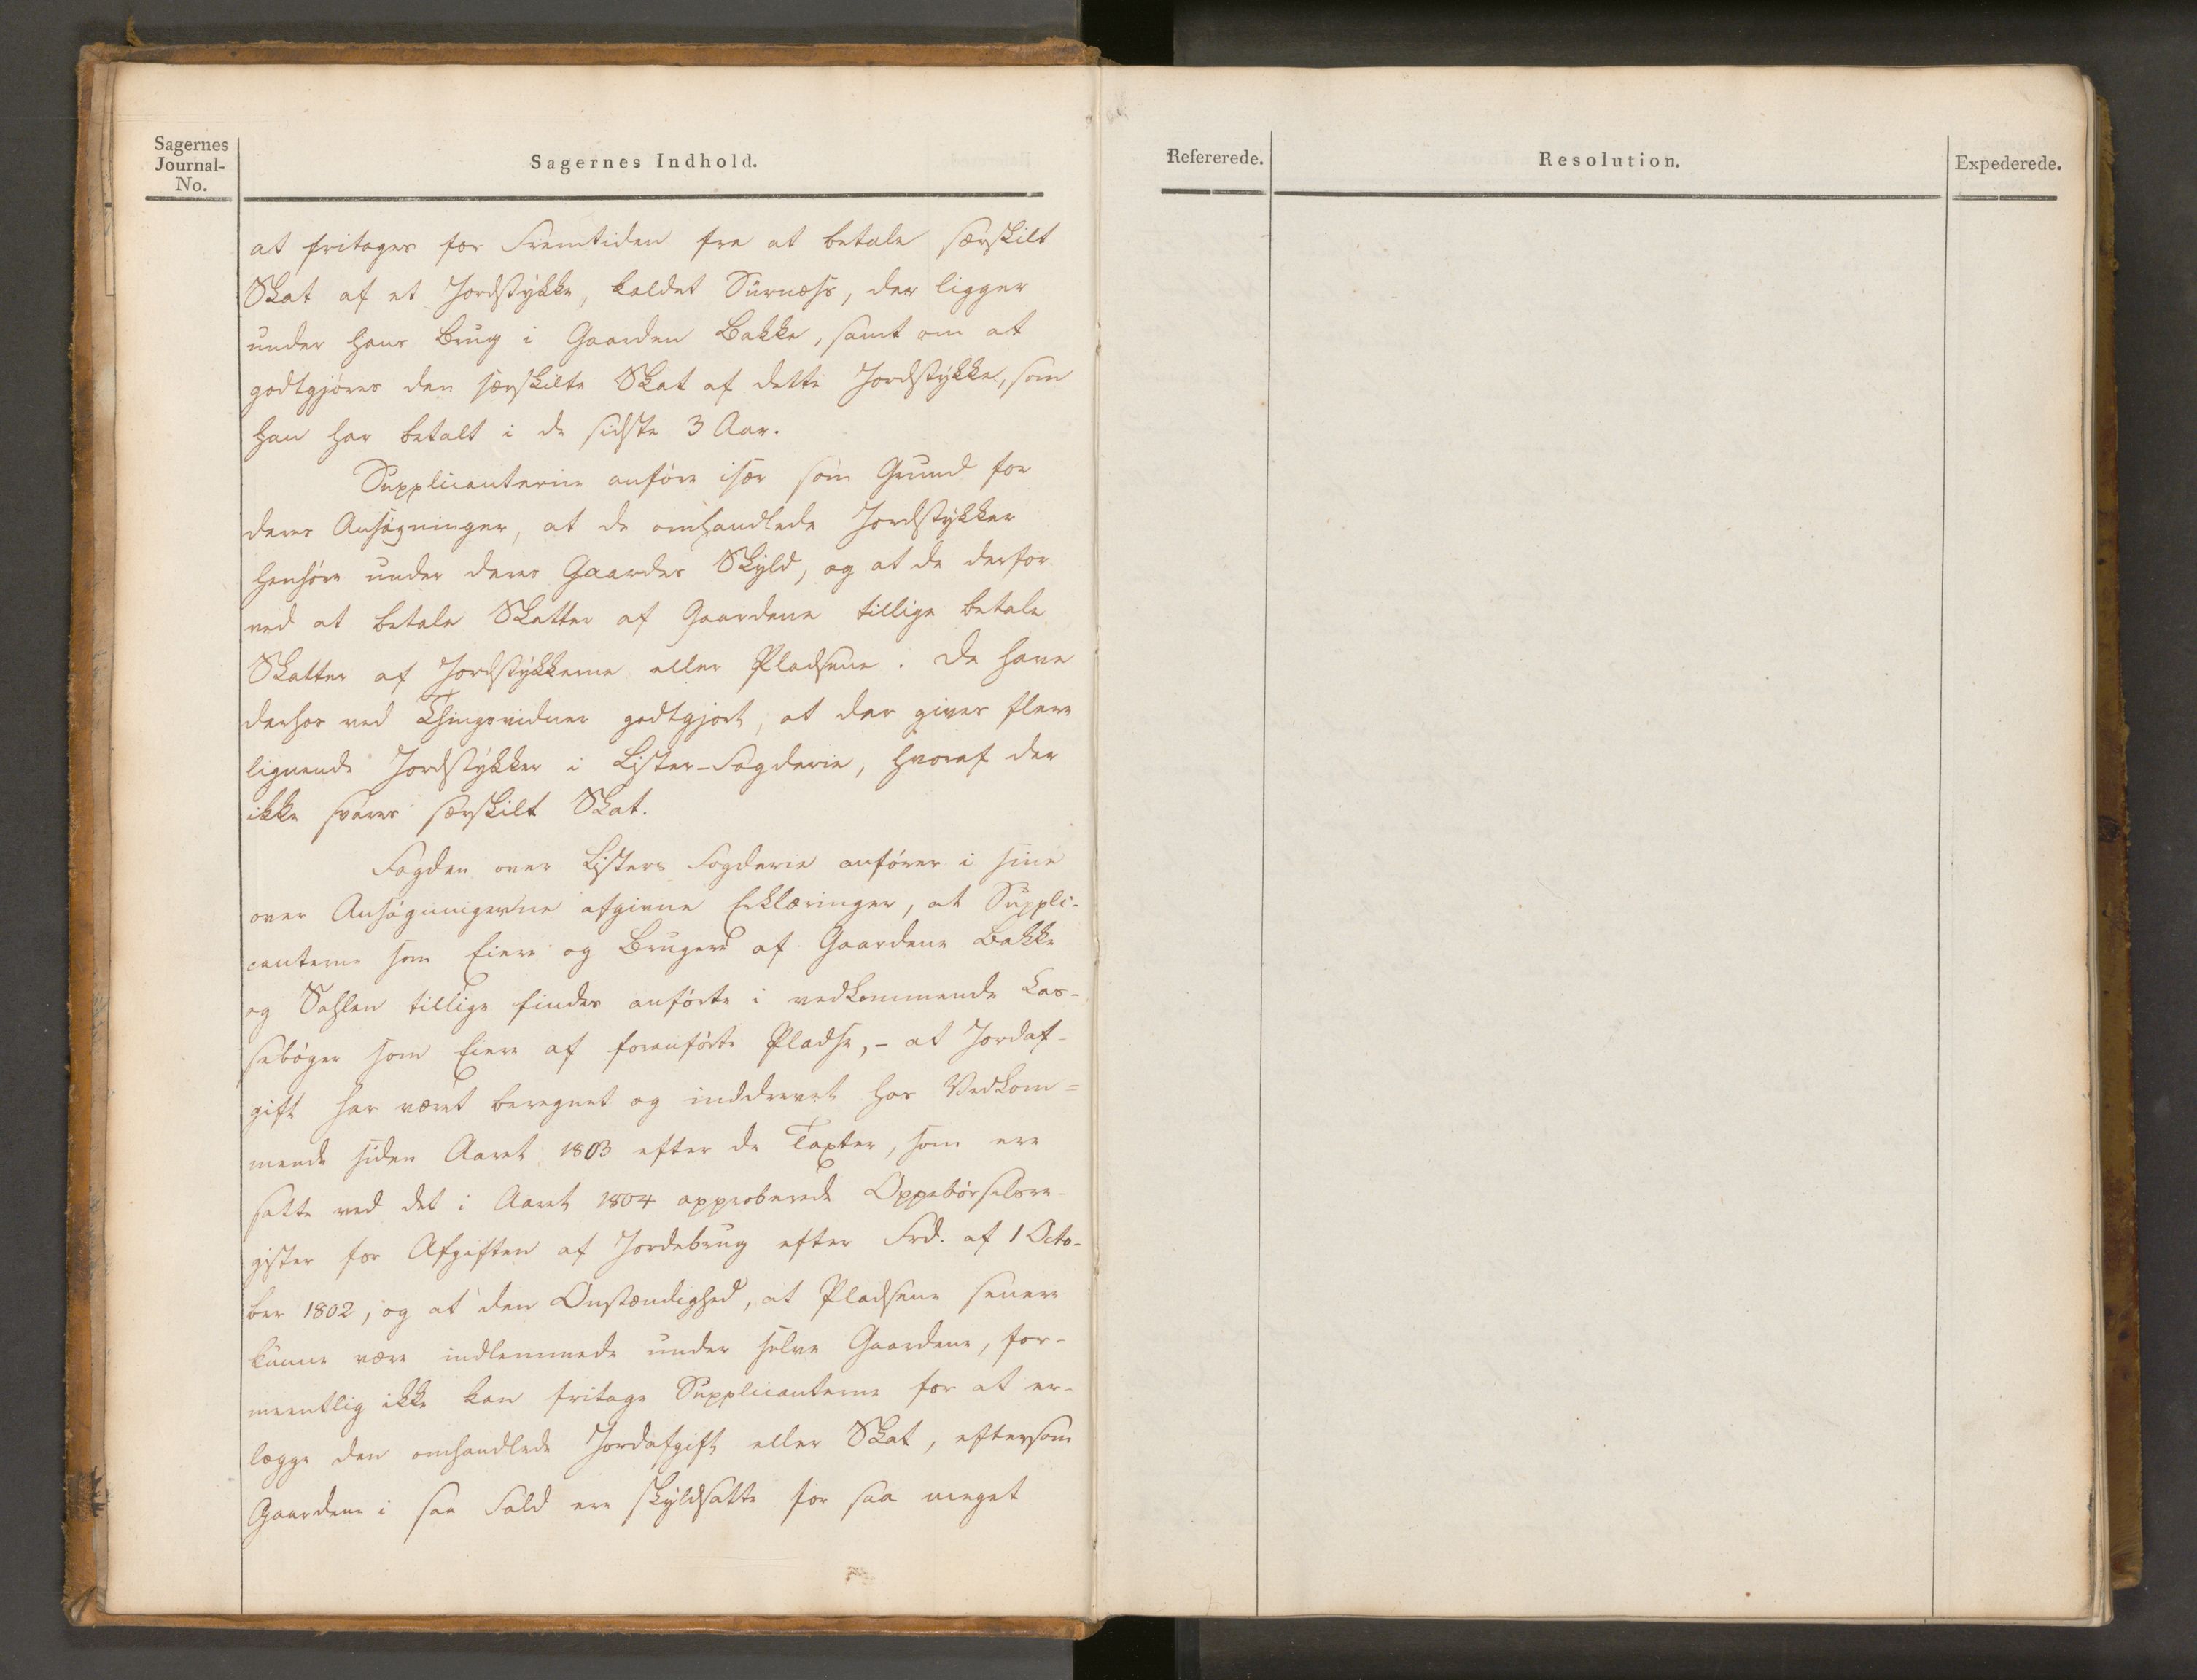 Sagernes
Journal-
No.
Sagernes Indhold.
at fritages for Fremtiden fra at betale særskilt
Skat af et Jordstykke, kaldet Surnæss, der ligger
under hans Brug i Gaarden Bakke, samt om at
godtgjøres den særskilte Skat af dette Jordstykke, som
han har betalt i de sidste 3 Aar.
Supplicanterne anføre især som Grund for
deres Ansøgninger, at de omhandlede Jordstykker
henhøre under deres Gaardes Skyld, og at de derfor
ved at betale Skatter af Gaardene tillige betale
Skatter af Jordstykkerne eller Pladsene. De have
derhos ved Thingsvidner godtgjort, at der gives flere
lignende Jordstykker i Lister-Fogderie, hvoraf der
ikke svares særskilt Skat.
Fogden over Listers Fogderie anfører i sine
over Ansøgningerne afgivne Erklæringer, at Suppli-
canterne som Eiere og Brugere af Gaardene Bakke
og Sahlen tillige findes anførte i vedkommende Cas-
sebøger som Eiere af foranførte Pladse, - at Jordaf-
gift har været beregnet og inddrevet hos Vedkom=
mende siden Aaret 1803 efter de Taxter, som ere
satte ved det i Aaret 1804 approberede Oppebørselsre-
gister for Afgiften af Jordebrug efter Frd. af 1 Octo-
ber 1802, og at den Omstændighed, at Pladsene senere
kunne være indlemmede under selve Gaardene, for-
meentlig ikke kan fritage Supplicanterne for at er-
lægge den omhandlede Jordafgift eller Skat, eftersom
Gaardene i saa Fald ere skyldsatte for saa meget
Refererede.
Resolution.
Expederede.